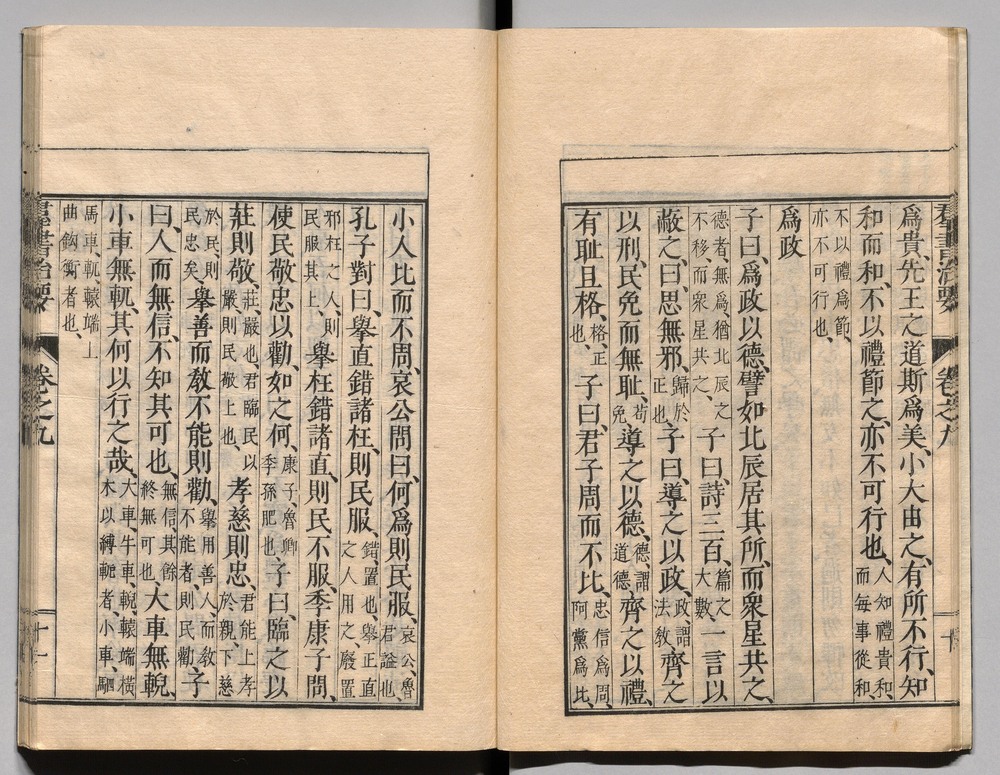 群書治要 卷之九 十
爲貴、先王之道斯爲美、小大由之、有所不行、知
和而和、不以禮節之、亦不可行也、人知禮貴和、而每事從和、
不以禮爲節、亦不可行也、
爲政
子曰、爲政以德、譬如北辰居其所、而衆星共之、
德者、無爲、猶北辰之不移、而衆星共之、子曰、詩三百、篇之大數、一言以
蔽之、曰、思無邪、歸於正也、子曰、導之以政、政、謂法敎、齊之
以刑、民免而無耻、苟免、導之以德、德、謂道德、齊之以禮、
有耻且格、格、正也、子曰、君子周而不比、忠信爲周、阿黨爲比、
小人比而不周、哀公問曰、何爲則民服、哀公、魯君謚也、
孔子對曰、擧直錯諸枉、則民服、錯、置也、擧正直之人用之、廢置
邪枉之人、則民服其上、擧枉錯諸直、則民不服、季康子問、
使民敬忠以勸、如之何、康子、魯卿季孫肥也、子曰、臨之以
莊則敬、莊、嚴也、君臨民以嚴、則民敬上也、孝慈則忠、君能上孝於親、下慈
於民、則民忠矣、擧善而敎不能則勸、擧用善人、而敎不能者、則民勸、子
曰、人而無信、不知其可也、無信、其餘終無可也、大車無輗、
小車無軏、其何以行之哉、大車、牛車、輗、轅端橫木以縛軛者、小車、駟
馬車、軏、轅端上曲鈎衡者也、
群書治要 卷之九 十一